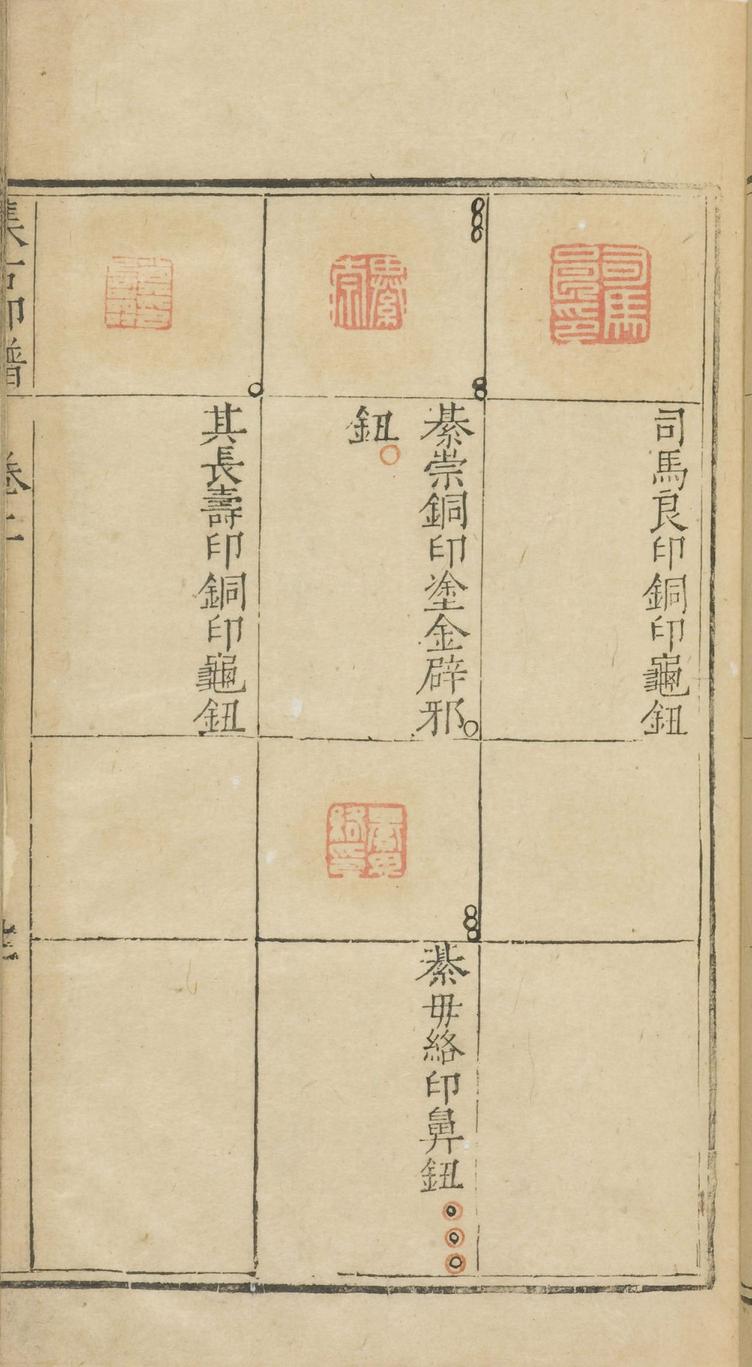 司馬良印銅印龜鈕
綦崇銅印塗金辟邪
鈕
綦毋絡印鼻鈕
其長壽印銅印龜鈕
集古印譜